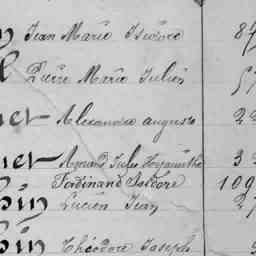 Jean Marie Isidore 8
Pierre Marie Julien 5
net Alexandre auguste 22
net Armand Jules Hyacinthe 32
Ferdinand Isidore 109
pin Lucien Jean 27
pin Théodore Joseph